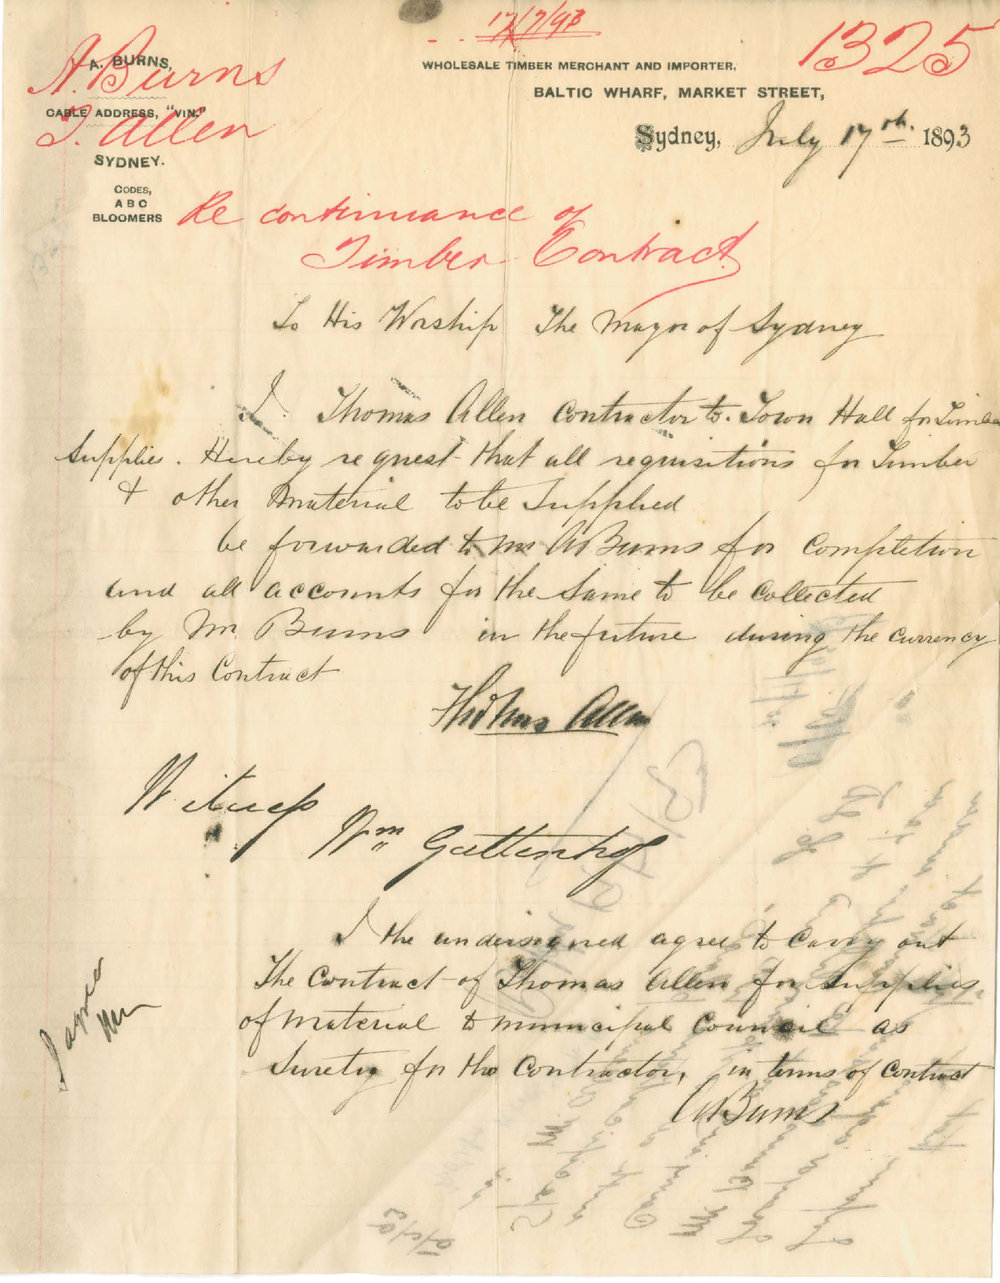 17/7/93
1325
A. Burns
T. Allen
A. BURNS,
CABLE ADDRESS, "VIN."
SYDNEY.
CODES,
A B C
BLOOMERS
WHOLESALE TIMBER MERCHANT AND IMPORTER,
BALTIC WHARF, MARKET STREET,
Sydney, July 17th. 1893
Re continuance of
Timber Contract
To His Worship The Mayor of Sydney
I. Thomas Allen Contractor to Town Hall for Timber
Supplies. Hereby request that all requisitions for Timber
& other Material to be Supplied
be forwarded to Mr A Burns for Completion
and all accounts for the Same to be Collected
by Mr Burns in the future during the currency
of this Contract
Thomas Allen
Witness
Wm Guttenhof
I the undersigned agree to Carry out
The Contract of Thomas Allen for Supplies
of Material to Municipal Council as
Surety for the Contractor, in terms of Contract
A Burns
I agree